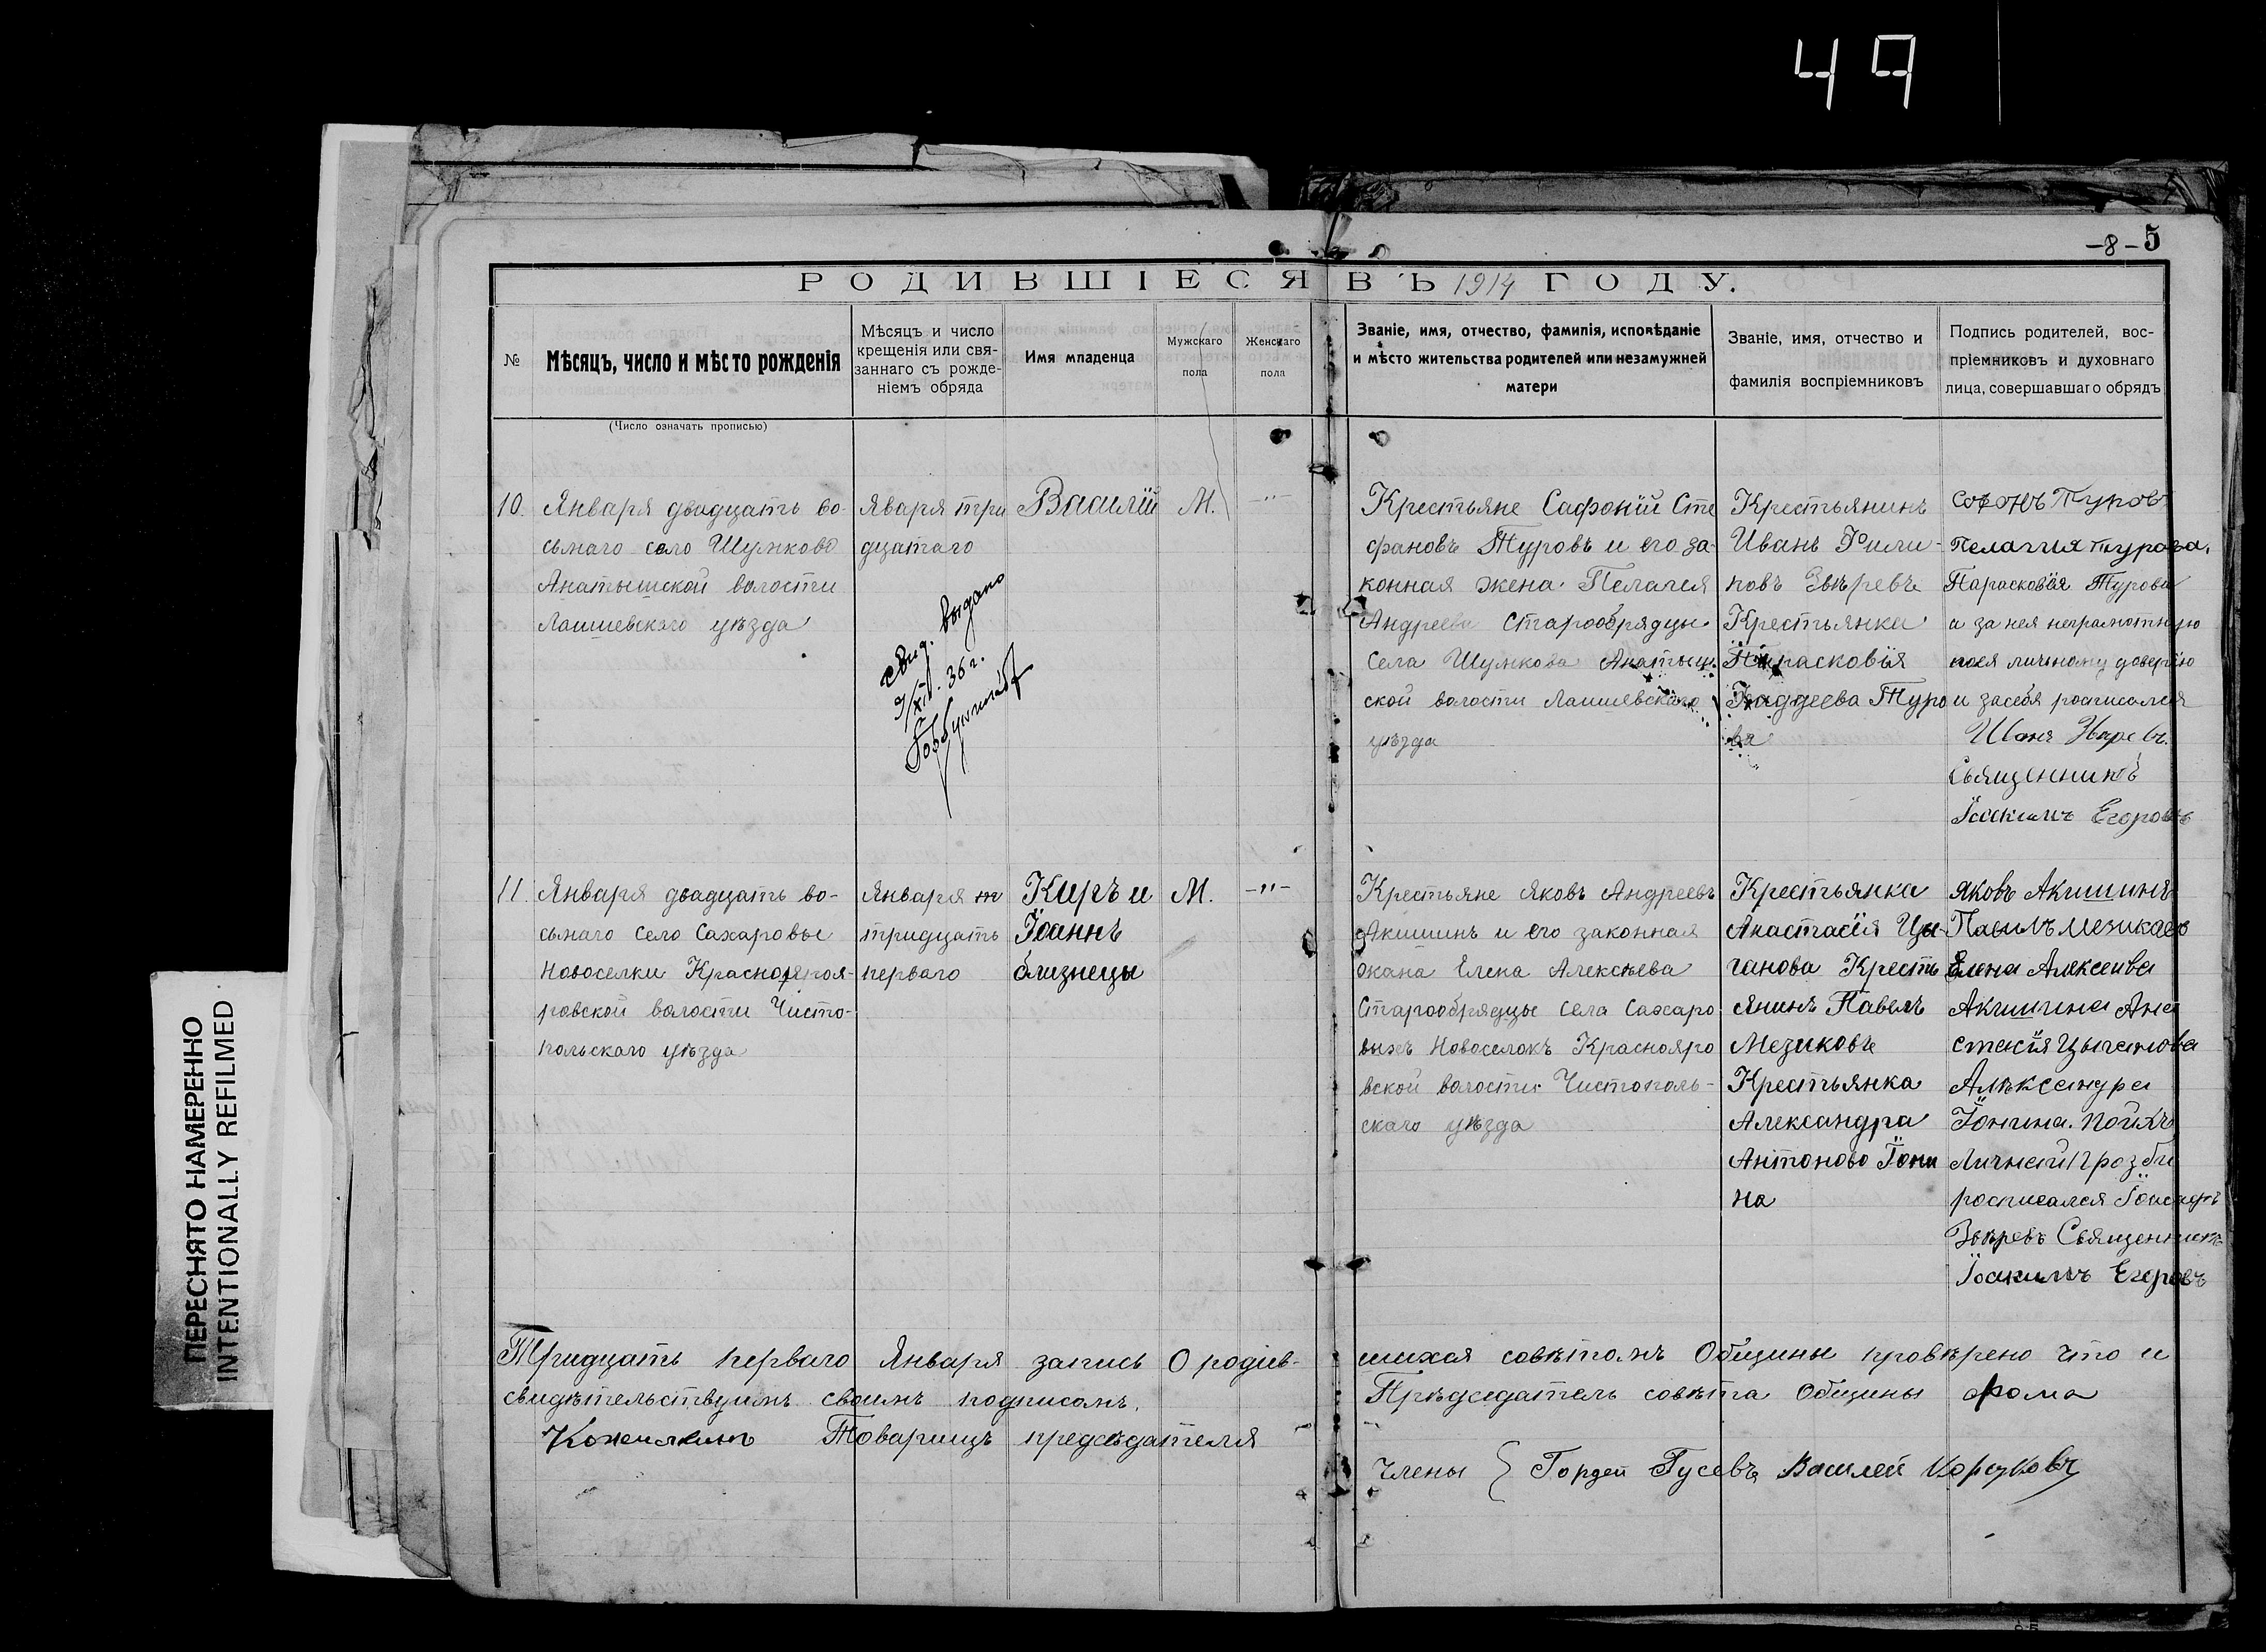 49
-8- 5
РОДИВШІЕСЯ ВЪ 1914 ГОДУ.
№
Мѣсяцъ, число и мѣсто рожденія
Мѣсяцъ и число
крещенія или свя-
заннаго съ рожде-
ніемъ обряда
Имя младенца
Мужскаго
пола
Женскаго
пола
Званіе, имя, отчество, фамилія, исповѣданіе
и мѣсто жительства родителей или незамужней
матери
Званіе, имя, отчество и
фамилія воспріемниковъ
Подпись родителей, вос-
пріемниковъ и духовнаго
лица, совершавшаго обрядъ
(Число означать прописью)
10.
Января двадцать во-
сьмаго село Шумково
Анатышской волости
Лаишевскаго уѣзда
Яваря три
дцатаго
свид. выдано
9/XII. 36 г.
Василій
М.
-"-
Крестьяне Сафоній Сте
фановъ Туровъ и его за-
конная жена Пелагея
Андреева Старообрядцы
села Шумкова Анатыш-
ской волости Лаишевскаго
уѣзда
Крестьянинъ
Иванъ Фили-
повъ Звѣревъ
Крестьянка
Парасковѣя
Фаддеева Туро
ва
Софонъ Туровъ
Пелагия Турова.
Парасковѣя Турова
а за нея неграмотную
поея личному доверію
и засебя росписался
Иванъ Зверевъ.
Священникъ
Іоакимъ Егоровъ
11.
Января двадцать во-
сьмаго село Сахаровы
Новоселки Краснояроя-
ровской волости Чисто-
польскаго уѣзда
Января т
тридцать
перваго
Киръ и
Іоаннъ
близнецы
М.
-"-
Крестьяне Яковъ Андреевъ
Акишинъ и его законная
жана Елена Алексѣева
Старообрядцы села Сахаро
выхъ Новоселокъ Краснояро
вской волости Чистополь-
скаго уѣзда
Крестьянка
Анастасія Цы-
ганова Кресть
янинъ Павелъ
Мезиковъ
Крестьянка
Александра
Антоново Іони
на
Яковъ Акишинъ
Павилъ Мезиковъ
Елена Алексеива
Акишина Ана
стасія Цыганова
Алѣксандра
Іонина. Поихъ
Личнай прозби
росписался
Звѣревъ Священникъ
Іоакимъ Егоровъ
Тридцать перваго Января запись О родив-
шихся совѣтомъ Общины провѣрено что и
свидѣтельствуимъ своимъ подписомъ.
Прѣдседатель совѣта Общины Фома
Товарищъ председателя
Члены { Гордей Гусевъ Василей Корсуковъ
ПЕРЕСНЯТО НАМЕРЕННО
INTENTIONALLY REFILMED